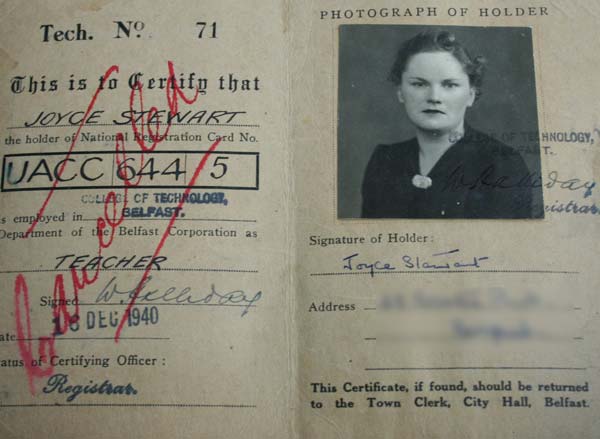 Tech. Nº 71
This is to Certify that
JOYCE STEWART
the holder of National Registration Card No.
UACC 644 5
COLLEGE OF TECHNOLOGY,
is employed in BELFAST.
Department of the Belfast Corporation as
TEACHER
Signed W. Halliday
18 DEC 1940
Status of Certifying Officer :
Registrar.
Cancelled
PHOTOGRAPH OF HOLDER
COLLEGE OF TECHNOLOGY,
BELFAST.
W. Halliday
Registrar.
Signature of Holder :
Joyce Stewart
Address
This Certificate, if found, should be returned
to the Town Clerk, City Hall, Belfast.